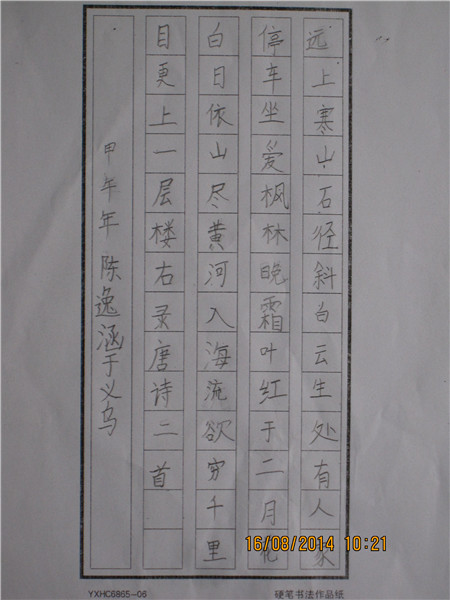 远上寒山石径斜白云生处有人家
停车坐爱枫林晚霜叶红于二月花
白日依山尽黄河入海流欲穷千里
目更上一层楼右录唐诗二首
甲午年 陈逸涵于义乌
16/08/2014 10:21
YXHC6865-06 硬笔书法作品纸